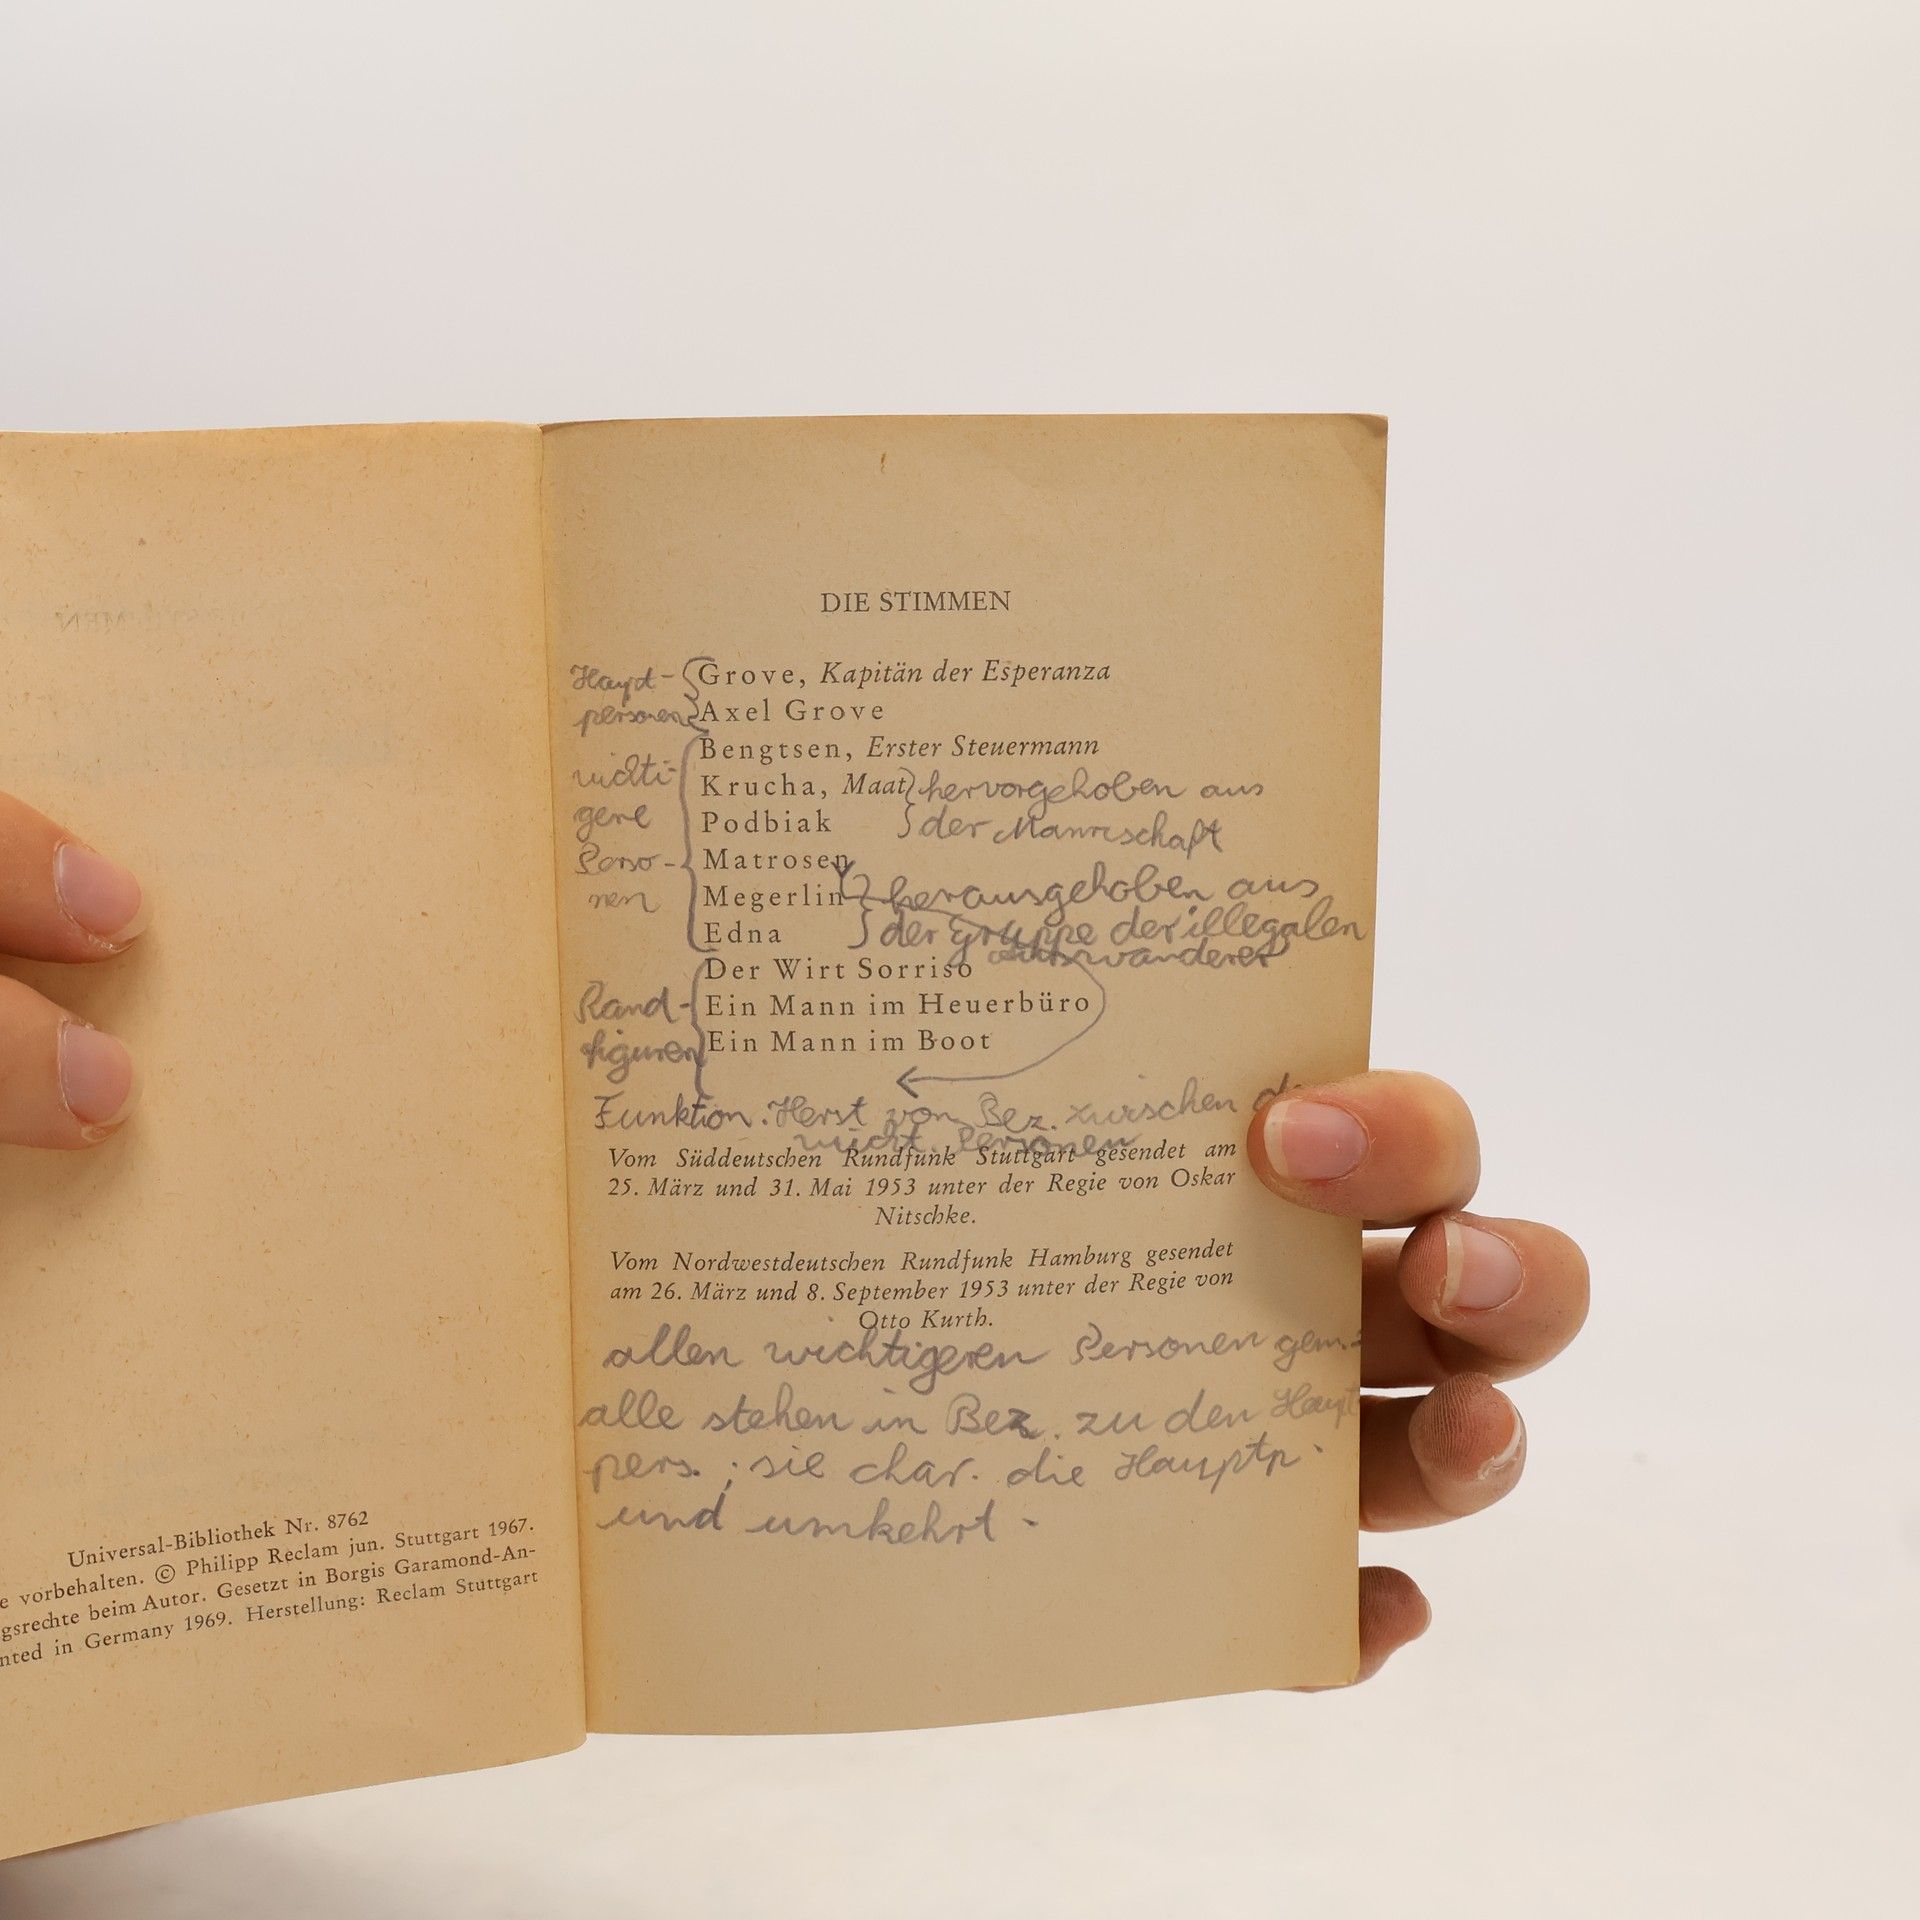 Universal-Bibliothek Nr. 8762
e vorbehalten. © Philipp Reclam jun. Stuttgart 1967.
gsrechte beim Autor. Gesetzt in Borgis Garamond-An-
nted in Germany 1969. Herstellung: Reclam Stuttgart
DIE STIMMEN
Haupt- Grove, Kapitän der Esperanza
personen Axel Grove
Bengtsen, Erster Steuermann
wichti- Krucha, Maat hervorgehoben aus
gere Podbiak der Mannschaft
Perso- Matrosen
nen Megerlin herausgehoben aus
Edna der Gruppe der illegalen
wanderer
Der Wirt Sorriso
Rand- Ein Mann im Heuerbüro
figuren Ein Mann im Boot
Funktion: Herst von Bez. zwischen
wicht. Personen
Vom Süddeutschen Rundfunk Stuttgart gesendet am
25. März und 31. Mai 1953 unter der Regie von Oskar
Nitschke.
Vom Nordwestdeutschen Rundfunk Hamburg gesendet
am 26. März und 8. September 1953 unter der Regie von
Otto Kurth.
allen wichtigeren Personen gem.:
alle stehen in Bez. zu den Haupt
pers.; sie char. die Hauptp.
und umkehrt.